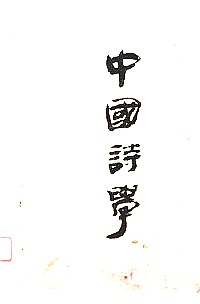 中國詩學